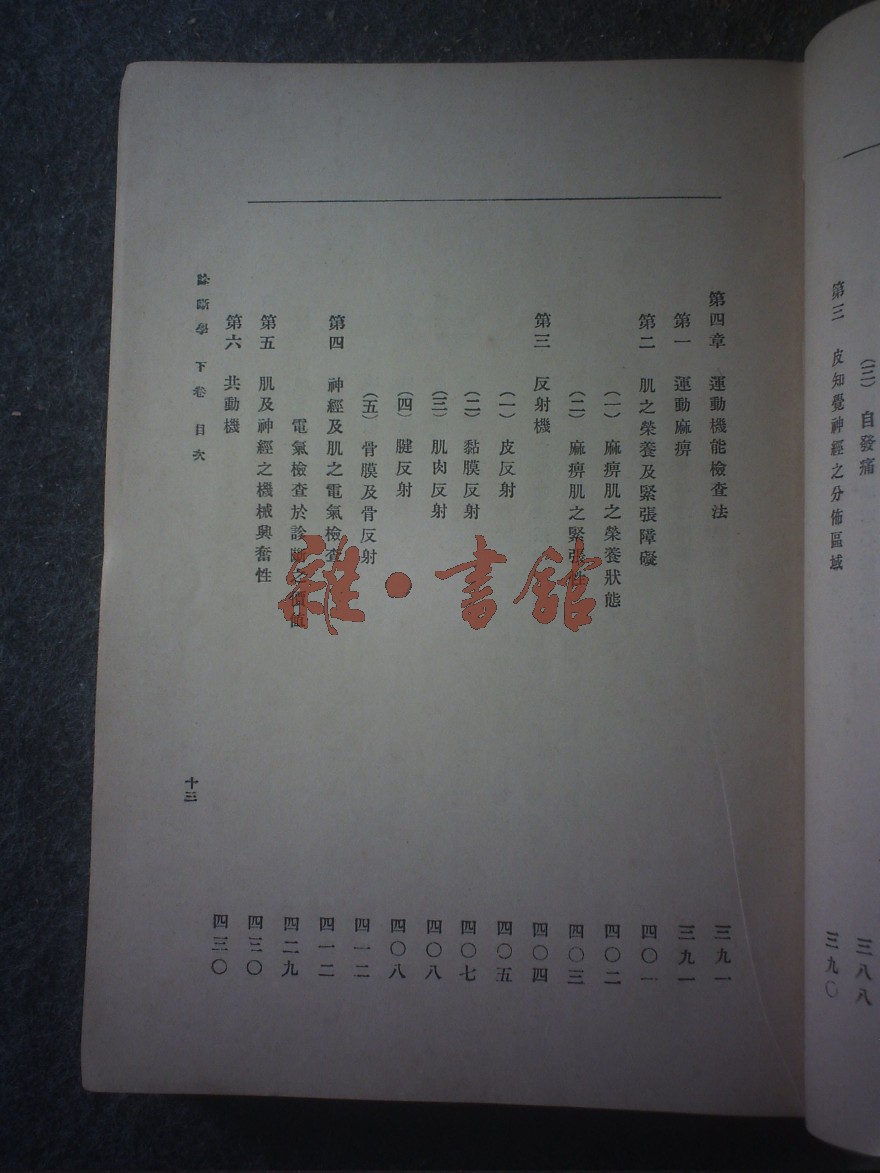 (三) 自發痛 三八八
第三 皮知覺神經之分佈區域 三九〇
第四章 運動機能檢查法 三九一
第一 運動麻痹 三九一
第二 肌之榮養及緊張障礙 四〇一
(一) 麻痹肌之榮養狀態 四〇二
(二) 麻痹肌之緊張性 四〇三
第三 反射機 四〇四
(一) 皮反射 四〇五
(二) 黏膜反射 四〇七
(三) 肌肉反射 四〇八
(四) 腱反射 四〇八
(五) 骨膜及骨反射 四一二
第四 神經及肌之電氣檢查 四一二
電氣檢查於診斷之價值 四二九
第五 肌及神經之機械興奮性 四三〇
第六 共動機 四三〇
診斷學 下卷 目次 十三
雜·書館